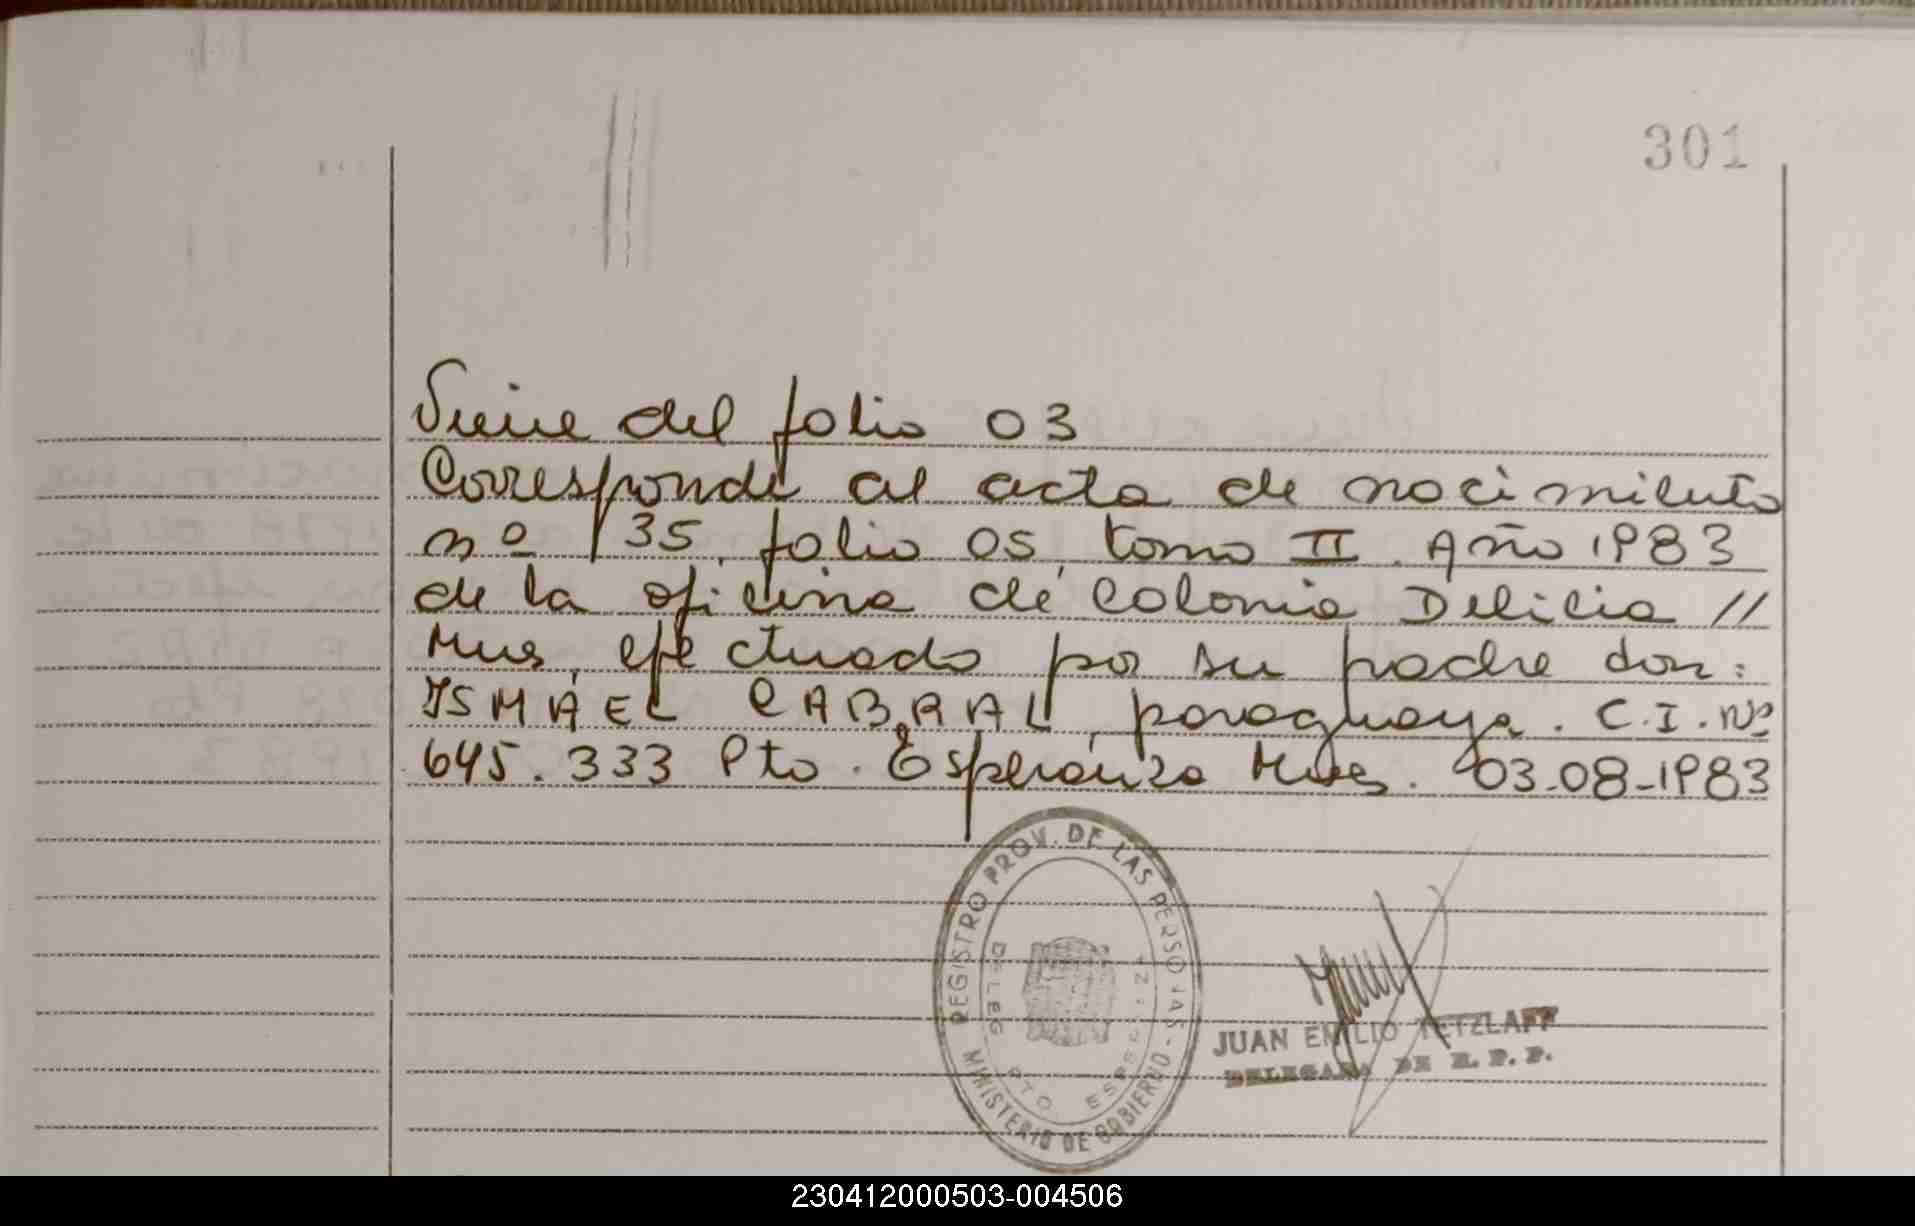 301
Viene del folio 03
Corresponde al acta de nacimiento
nº 135, folio 05, tomo II. Año 1983
de la oficina de Colonia Delicia //
Mnes, efectuado por su padre don:
ISMAEL CABRAL, paraguaya. C.I. Nº
645.333 Pto. Esperanza Mnes. 03-08-1983
REGISTRO PROV. DE LAS PERSONAS - MINISTERIO DE GOBIERNO
DELEG. PTO ESPERANZA
JUAN EMILIO TETZLAFF
DELEGADA DE R. P. P.
230412000503-004506